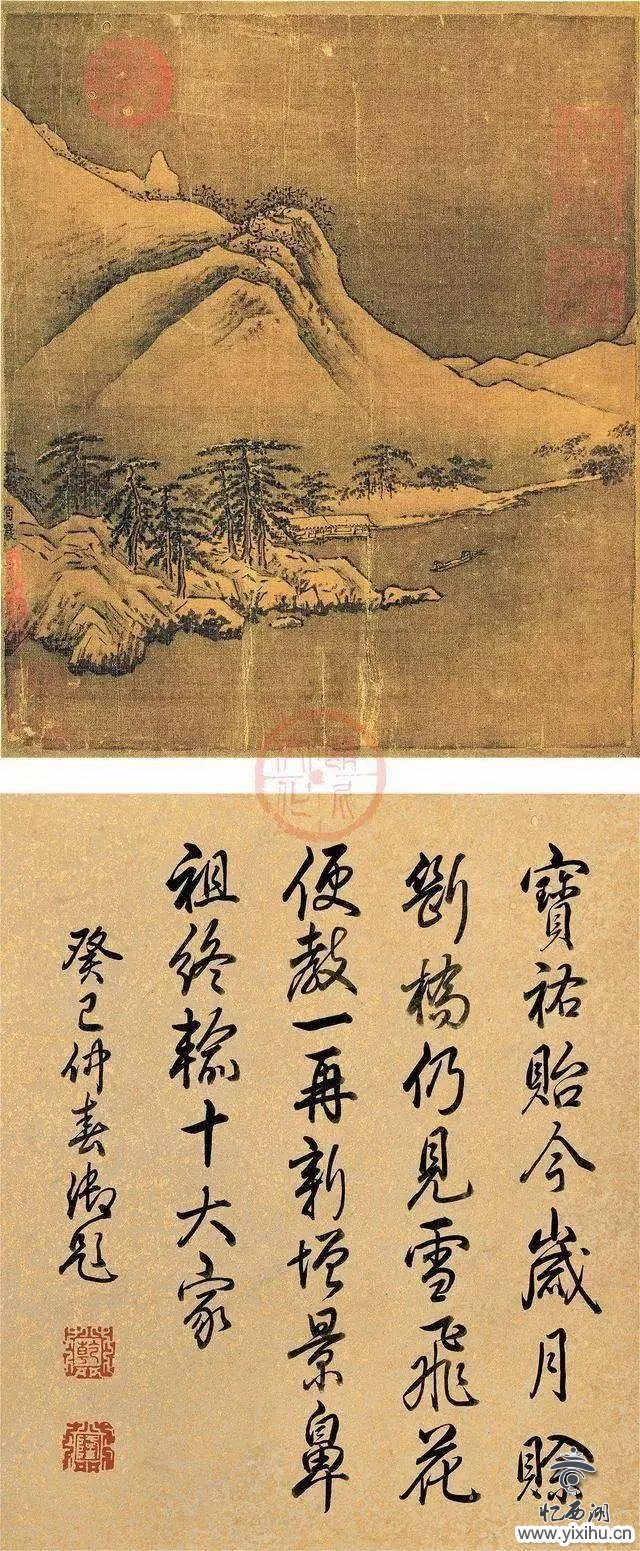 寶祐貽今歲月賒
斷橋仍見雪飛花
便教一再新增景鼻
祖終輸十大家
癸巳仲春御題
乾
隆
忆西湖
www.yixihu.cn